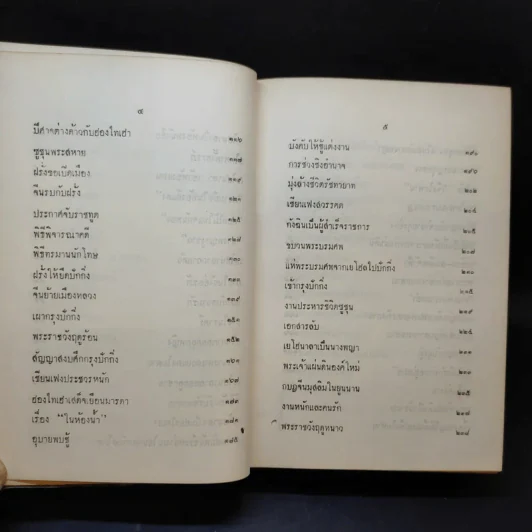 ๔
มีศาจต่างด้าวกับฮ่องไทเฮา ๑๑๖
ซูชุนพระสหาย ๑๑๗
ฝรั่งขอเปิดเมือง ๑๑๙
จีนรบกับฝรั่ง
ประกาศจับราชทูต ๑๒๕
พิธีพิจารณาคดี ๑๒๗
พิธีทรมานนักโทษ ๑๓๐
ฝรั่งให้ยึดปักกิ่ง ๑๓๓
จีนย้ายเมืองหลวง ๑๓๙
เผากรุงปักกิ่ง ๑๕๑
พระราชวังฤดูร้อน ๑๕๗
สัญญาสงบศึกกรุงปักกิ่ง ๑๖๑
เซียนเฟงประชวรหนัก ๑๖๗
ฮ่องไทเฮาเสด็จเยือนมารดา ๑๗๓
เรื่อง "ในห้องน้ำ" ๑๗๘
อุบายพบชู้ ๑๘๕
๕
บังคับให้ชู้แต่งงาน ๑๙๑
การช่วงชิงอำนาจ ๑๙๖
มุ่งล้างชีวิตรัชทายาท ๒๐๒
เซียนเฟงสวรรคต ๒๐๔
ทั้งฉินเป็นผู้สำเร็จราชการ ๒๐๕
ขบวนพระบรมศพ ๒๐๘
แห่พระบรมศพจากเยโฮลไปปักกิ่ง ๒๑๐
เข้ากรุงปักกิ่ง ๒๑๕
งานประหารชีวิตซูชุน
เอกสารลับ
เยโฮนาลาเป็นนางพญา
พระเจ้าแผ่นดินองค์ใหม่
กบฏจีนมุสลิมในยูนนาน
งานหนักและคนรัก
พระราชวังฤดูหนาว